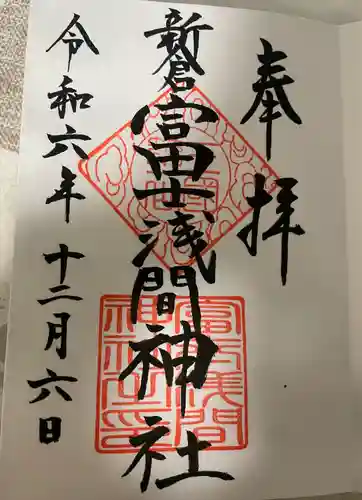 奉拝
新倉
富士浅間神社
令和六年十二月六日
富士浅間
神社之印